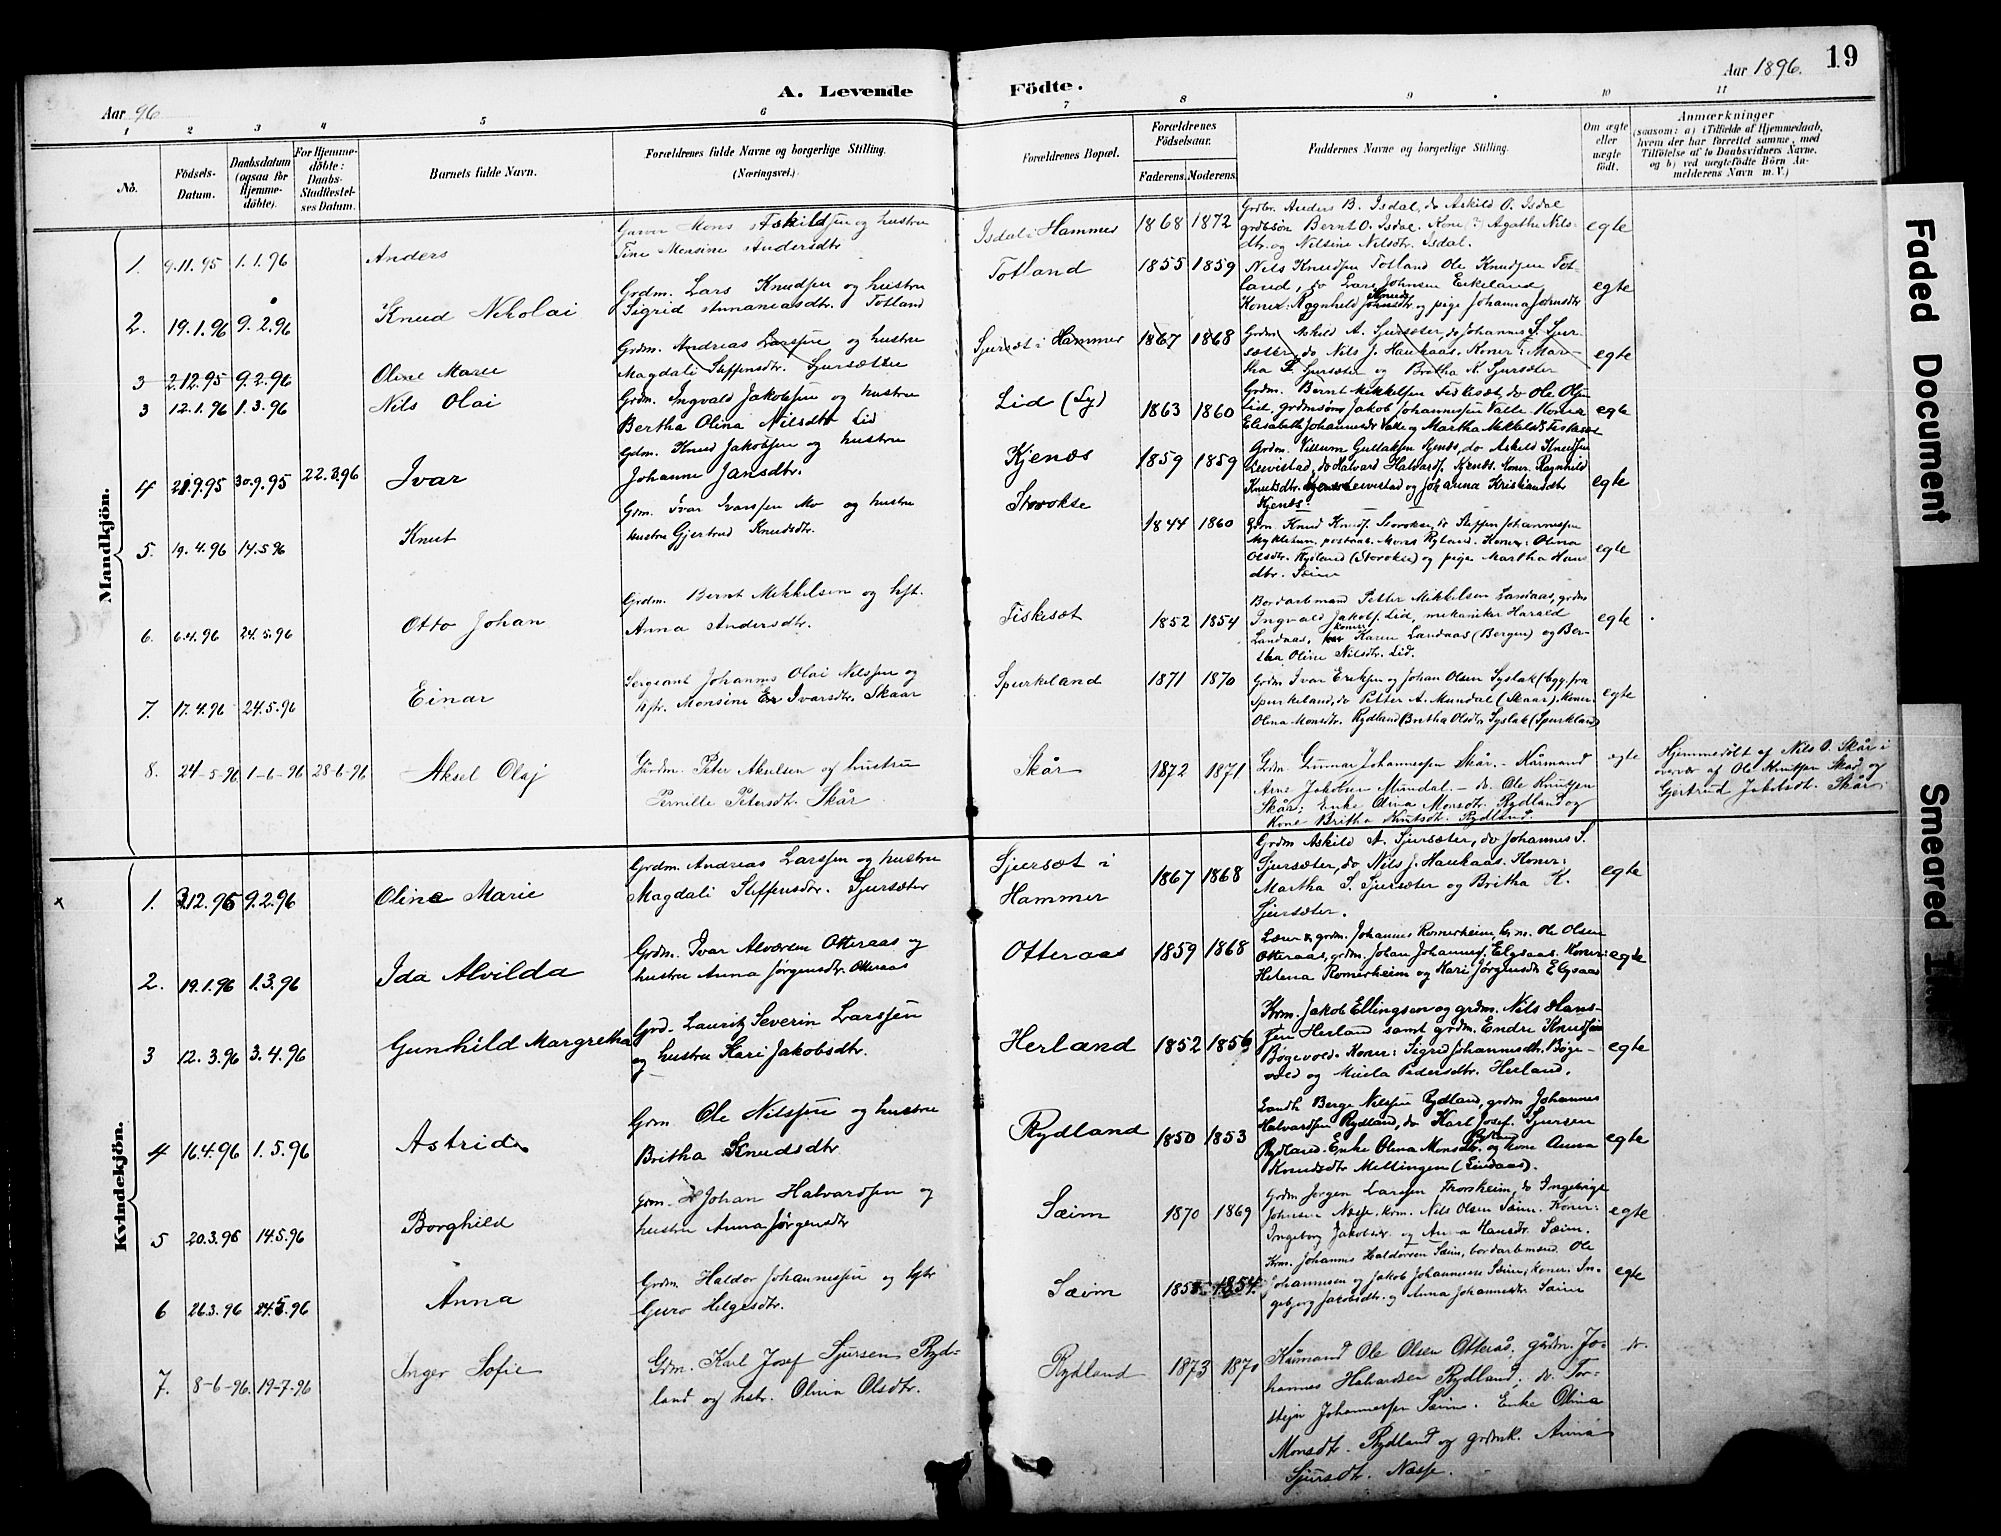 Aar 96
A. Levende Födte.
Aar 1896. 19
1 2 3 4 5 6 7 8 9 10 11
No.
Födsels-Datum.
Daabsdatum (ogsaa för Hjemmedöbte).
For Hjemmedöbte: Daabs-Stadfæstelses Datum.
Barnets fulde Navn.
Forældrenes fulde Navne og borgerlige Stilling. (Næringsvei.)
Forældrenes Bopæl.
Forældrenes Födselsaar.
Faderens. Moderens.
Faddernes Navne og borgerlige Stilling.
Om ægte eller uægte födt.
Anmærkninger
(saasom: a) i Tilfælde af Hjemmedaab,
hvem der har forrettet samme, med
Tilföielse af to Daabsvidners Navne,
og b) ved uægtefödte Börn Anmelderens Navn m. V.)
Mandkjön.
1. 9.11.95 1.1.96 Anders
Mons Askildsen og hustru
Tine Monsine Andersdtr
Isdal i Hammer 1868 1872
Grdbr. Anders B. Isdal, do Askild O. Isdal
grdbsön Bernt O. Isdal. Kone(r) Agathe Nils-
dtr. og Nilsine Nilsdtr. Isdal.
egte
2. 19.1.96 9.2.96 Knud Nikolai
Grdm. Lars Knudsen og hustru
Sigrid Annaniasdtr. Totland
Totland 1855 1859
Nils Knudsen Totland Ole Knudsen Tot-
land, do Lars Johnsen Eikeland
Koner: Ragnheld Knudsdtr og pige Johanna Johnsdtr
egte
3 2.12.95 9.2.96 Oline Marie
Grdm. Andreas Larssen og hustru
Magdali Steffensdtr. Sjursæter
Sjursæt i Hammer 1867 1868
Grdm Askild A. Sjursæter, do Johannes S. Sjur-
sæter, do Nils J. Haukaas. Koner: Mar-
tha S. Sjursæter og Britha K. Sjursæter
egte
3 12.1.96 1.3.96 Nils Olai
Grdm. Ingvald Jakobsen og hustru
Bertha Olina Nilsdtr Lid
Lid (Ly) 1863 1860
Grdm. Bernt Mikkelsen Fiskesæt, do Ole Olsen
Lid, grdmsön Jakob Johannessen Valle. Koner
Elisabeth Johannesdtr Valle og Martha Mikkelsdtr Fiskesæt
egte
4 21.9.95 30.9.95 22.3.96 Ivar
Gdm. Knud Jakobsen og hustru
Johanne Jansdtr.
Kjenes 1859 1859
Grdm. Villum Gullaksen Kjenes, do Askild Knudsen
Leivestad, do Halvard Halvards. Kjenes. Koner. Ragnhild
Knutsdtr. Leivestad og Johanna Kristiansdtr
Kjenes.
egte
5 19.4.96 14.5.96 Knut
Grm. Ivar Ivarssen Mo og hustru
hustru Gjertrud Knudsdtr.
Storokse 1844 1860
Grdm Knud Knuds. Storokse, do Steffen Johannessen
Mykletun, postaab. Mons Rydland. Koner: Olina
Olsdtr. Rydland (Storokse) og pige Martha Hans
dtr. Seim
egte
6. 6.4.96 24.5.96 Otto Johan
Grdm. Bernt Mikkelsen og hst.
Anna Andersdtr.
Fiskesæt 1852 1854
Bordarbmand Petter Mikkelsen Landaas, grdm
Ingvald Jakobs. Lid, mekaniker Harald
Landaas, koner Karen Landaas (Bergen) og Ber-
tha Oline Nilsdtr. Lid.
egte
7. 17.4.96 24.5.96 Einar
Sergeant Johannes Olai Nilssen og
hstr. Monsine Ivarsdtr. Skaar
Spurkeland 1871 1870
Grdm Ivar Eriksen og Johan Olsen Syslak (byg. fra
Spurkeland, do Petter A. Mundal (Skaar). Koner
Olina Monsdtr. Rydland (Bretha Olsdtr Syslak (Spurkland)
egte
8. 24-5-96 1-6-96 28-6-96 Aksel Olaj
Gårdm. Peter Akselsen og hustru
Pernille Petersdtr. Skår
Skår 1872 1871
Grdm. Gunnar Johannessen Skår. - Kårmand
Arne Jakobsen Mundal - do. Ole Knutsen
Skår; Enke Olina Monsdtr. Rydland og
Kone Britha Knutsdtr. Rydland.
egte
Hjemmedöbt af Nils O. Skår i
overvær af Ole Knutsen Skår og
Gjertrud Jakobsdtr. Skår
Kvindekjön.
x 1. 3.12.95 9.2.96 Oline Marie
Grdm. Andreas Larssen og hustru
Magdali Steffensdtr. Sjursæter
Sjursæt i
Hammer 1867 1868
Grdm Askild A. Sjursæter, do Johannes S.
Sjursæter, do Nils J. Haukaas. Koner:
Martha S. Sjursæter og Britha K.
Sjursæter.
egte
2. 19.1.96 1.3.96 Ida Alvilda
Grdm. Ivar Alversen Otteraas og
hustru Anna Jørgensdtr. Otteraas
Otteraas 1859 1868
Lærer & grdm. Johannes Romerheim, krm. Ole Olsen
Otteraas, grdm. Johan Johanness. Elgsaas. Koner:
Helena Romerheim og Kari Jørgensdtr Elgsaas
egte
3 12.3.96 3.4.96 Gunhild Margretha
Grd. Lauritz Severin Larssen
og hustru Kari Jakobsdtr.
Herland 1852 1856
Krm. Jakob Ellingsen og grdm. Nils Hans-
sen Herland samt grdm. Endre Knudsen
Bøgevold. Koner: Sigrid Johannesdtr. Bøge-
vold og Pedersdtr. Herland.
egte
4 16.4.96 1.5.96 Astrid
Grdm Ole Nilssen og hustru
Britha Knudsdtr
Rydland 1850 1853
Landh Berge Nilssen Rydland, grdm Johannes
Halvardsen Rydland, do Karl Josef Sjursen
Rydland. Enke Olina Monsdtr. Rydland og kone Anna
Knudsdtr Mellingen (Eidaas).
egte
5 20.3.96 14.5.96 Borghild
Grm. Johan Halvardsen og
hustru Anna Jørgensdtr
Sæim 1870 1869
Grdm Jørgen Larssen Frorskeim, do Ingebrigt
Johnsen Nasse, krm. Nils Olsen Seim. Koner:
Ingeborg Jakobsdtr og Anna Hansdtr. Sæim.
egte
6 26.3.96 24.5.96 Anna
Grdm. Haldor Johannessen og hstr
Guro Helgesdtr.
Sæim 1854.
Krm. Johannes Haldorsen Sæim, bordarbmand Ole
Johannesen og Jakob Johannesen Sæim; koner. In-
gebjørg Jakobsdtr. og Anna Johannesdtr Sæim
egte
7. 8-6-96 19-7-96 Inger Sofie
Grdm. Karl Josef Sjursen Ryd-
land og hst. Olina Olsdtr.
Rydland 1873 1870
Kårmand Ole Olsen Otterås, gårdm. Jo-
hannes Halvardsen Rydland; do. Tor-
stein Johannessen Sæim. Enke Olina
Monsdtr. Rydland og grdmk. Anna
Sjursdtr. Nasse.
do.
Faded Document
Smeared